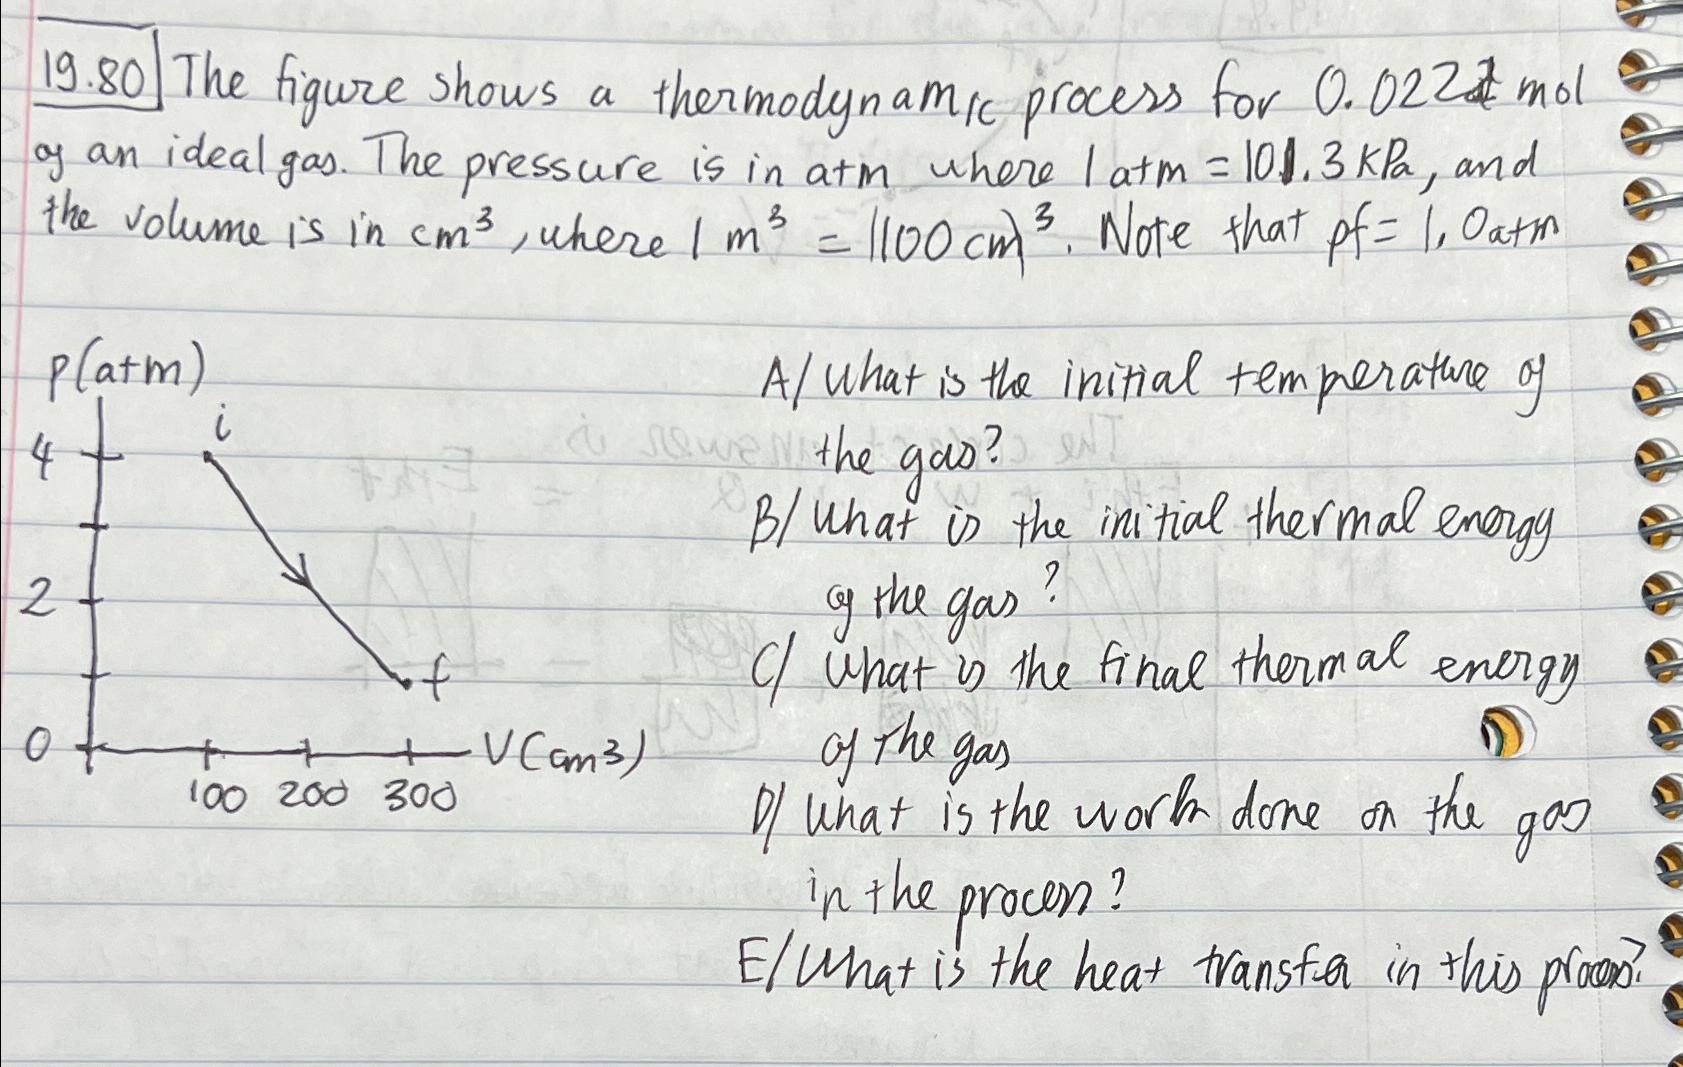 19.80 The figure shows a thermodynamic process for 0.022 mol
of an ideal gas. The pressure is in atm where 1 atm = 101.3 kPa, and
the volume is in cm³, where 1 m³ = (100 cm)³. Note that pf = 1,0 atm
p(atm)
i
4
2
f
0
V(cm3)
100 200 300
A/ What is the initial temperature of
the gas?
B/ What is the initial thermal energy
of the gas?
C/ What is the final thermal energy
of the gas
D/ What is the work done on the gas
in the process?
E/ What is the heat transfer in this process?